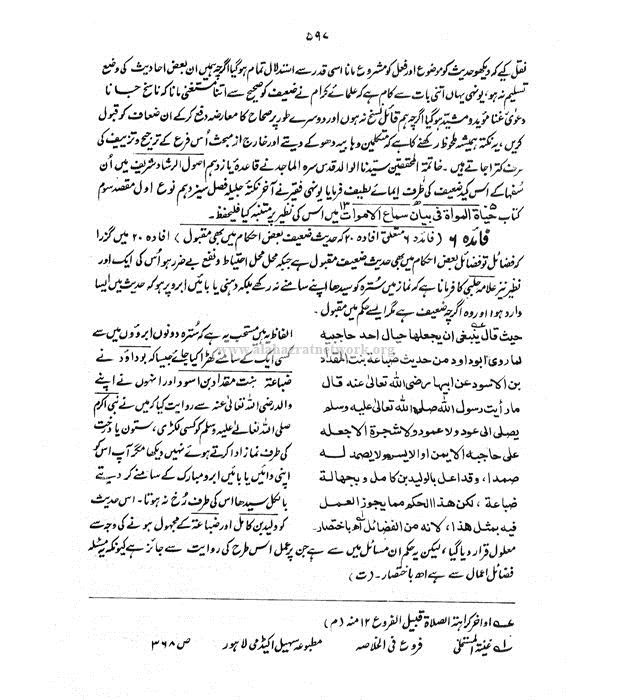 ۵۹۷
نقل کیے کہ دیکھو حدیث کو موضوع اور فعل کو مشروع مانا اسی قدر سے استدلال تمام ہوگیا اگرچہ ہمیں ان بعض احادیث کی وضع
تسلیم نہ ہو، یونہی یہاں اتنی بات سے کام ہے کہ علمائے کرام نے ضعیف کو صحیح سے اتنا مستغنی مانا کہ ناسخ جانا
دعوی غنا مؤید و مشیّد ہوگیا اگرچہ ہم قائل نسخ نہ ہوں اور دوسرے طور پر صحاح کا معارضہ دفع کرکے ان ضعاف کو قبول
کریں، یہ نکتہ ہمیشہ ملحوظ رکھنے کا ہے کہ متکلمین وہابیہ دھوکے دیتے اور خارج از مبحث اُس فرع کے ترجیح و تزییف کی
طرف کترا جاتے ہیں۔ خاتمۃ المحققین سیدنا الوالد قدس سرہ الماجد نے قاعدۂ یازدہم اصول الرشاد شریف میں اُن
سفہا کے اس کید ضعیف کی طرف ایمائے لطیف فرمایا یونہی فقیر نے آخر نکتۂ جلیلہ فصل سیزدہم نوع اول مقصد سوم
کتاب حیاۃ المواۃ فی بیان سماع الاموات میں اس کی نظیر پر متنبہ کیا فلیحفظ۔
فائدہ ۶ (فائدہ ۶ متعلق افادہ ۲۰ کہ حدیث ضعیف بعض احکام میں بھی مقبول) افادہ ۲۰ میں گزرا
کہ فضائل تو فضائل بعض احکام میں بھی حدیث ضعیف مقبول ہے جبکہ محل محلِ احتیاط و نفع بے ضرر ہو اُس کی ایک اور
نظیر نیز علامہ حلبی کا فرمانا ہے کہ نماز میں سُترہ کو سیدھا اپنے سامنے نہ رکھے بلکہ دہنی یا بائیں ابرو پر ہو کہ حدیث میں ایسا
وارد ہوا اور وہ اگرچہ ضعیف ہے مگر ایسے حکم میں مقبول۔
حیث قال ینبغی ان یجعلھا حیال احد حاجبیہ
لما روی ابو داود من حدیث ضباعۃ بنت المقداد
بن الاسود عن ابیھا رضی اللہ تعالٰی عنہ قال
ما رأیت رسول اللہ صلی اللہ تعالٰی علیہ وسلم
یصلی الی عود ولا عمود ولا شجرۃ الا جعلہ
علی حاجبہ الایمن او الایسر ولا یصمد لہ
صمدا، وقد اعل بالولید بن کامل و بجھالۃ
ضباعۃ، لکن ھذا الحکم مما یجوز العمل
فیہ بمثل ھذا، لانہ من الفضائل اھ باختصار۔
الفاظ یہ ہیں مستحب یہ ہے کہ سُترہ دونوں ابروؤں میں سے
کسی ایک کے سامنے کھڑا کیا جائے جیسا کہ ابو داؤد نے
ضباعۃ بنت مقداد بن اسود اور انھوں نے اپنے
والد رضی اللہ تعالٰی عنہ سے روایت کیا کہ میں نے نبی اکرم
صلی اللہ تعالٰی علیہ وسلم کو کسی لکڑی، ستون یا درخت
کی طرف نماز ادا کرتے ہوئے نہیں دیکھا مگر آپ اس کو
اپنی دائیں یا بائیں ابرو مبارک کے سامنے کر دیتے
بالکل سیدھا اس کی طرف رُخ نہ ہوتا۔ اس حدیث
کو ولید بن کامل اور ضباعۃ کے مجہول ہونے کی وجہ سے
معلول قرار دیا گیا، لیکن یہ حکم ان مسائل میں سے ہے جن پر عمل اس طرح کی روایت سے جائز ہے کیونکہ یہ مسئلہ
فضائل اعمال سے ہے اھ باختصار۔ (ت)
عہ اواخر کراہۃ الصلاۃ قبیل الفروع ۱۲ منہ (م)
لہ غنیۃ المستملی فروع فی الخلاصہ مطبوعہ سہیل اکیڈمی لاہور ص ۳۶۸
www.alahazratnetwork.org